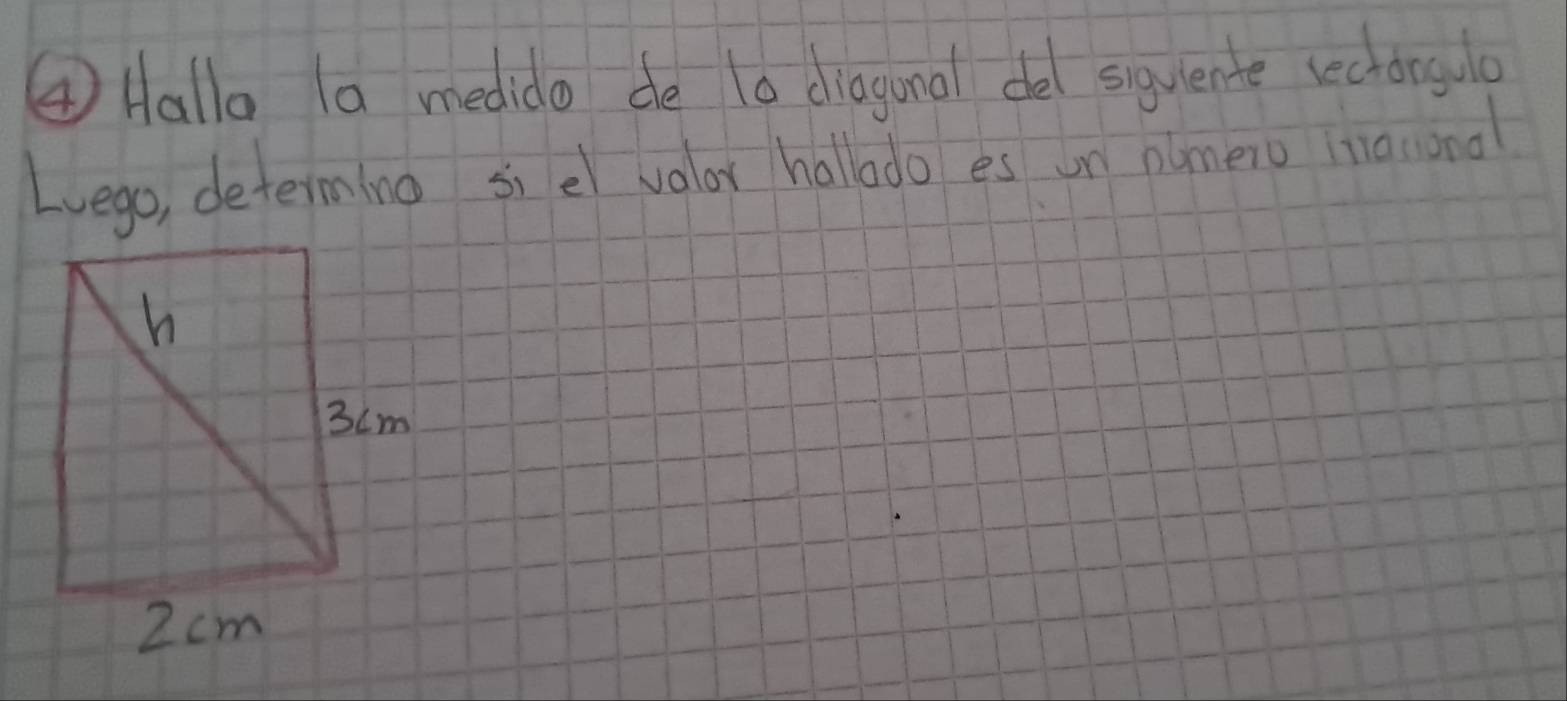 ④ Halla la medida de la diagonal del siguiente rectángulo
Luego, determina si el valor hallado es un número irracional
h
3cm
2cm